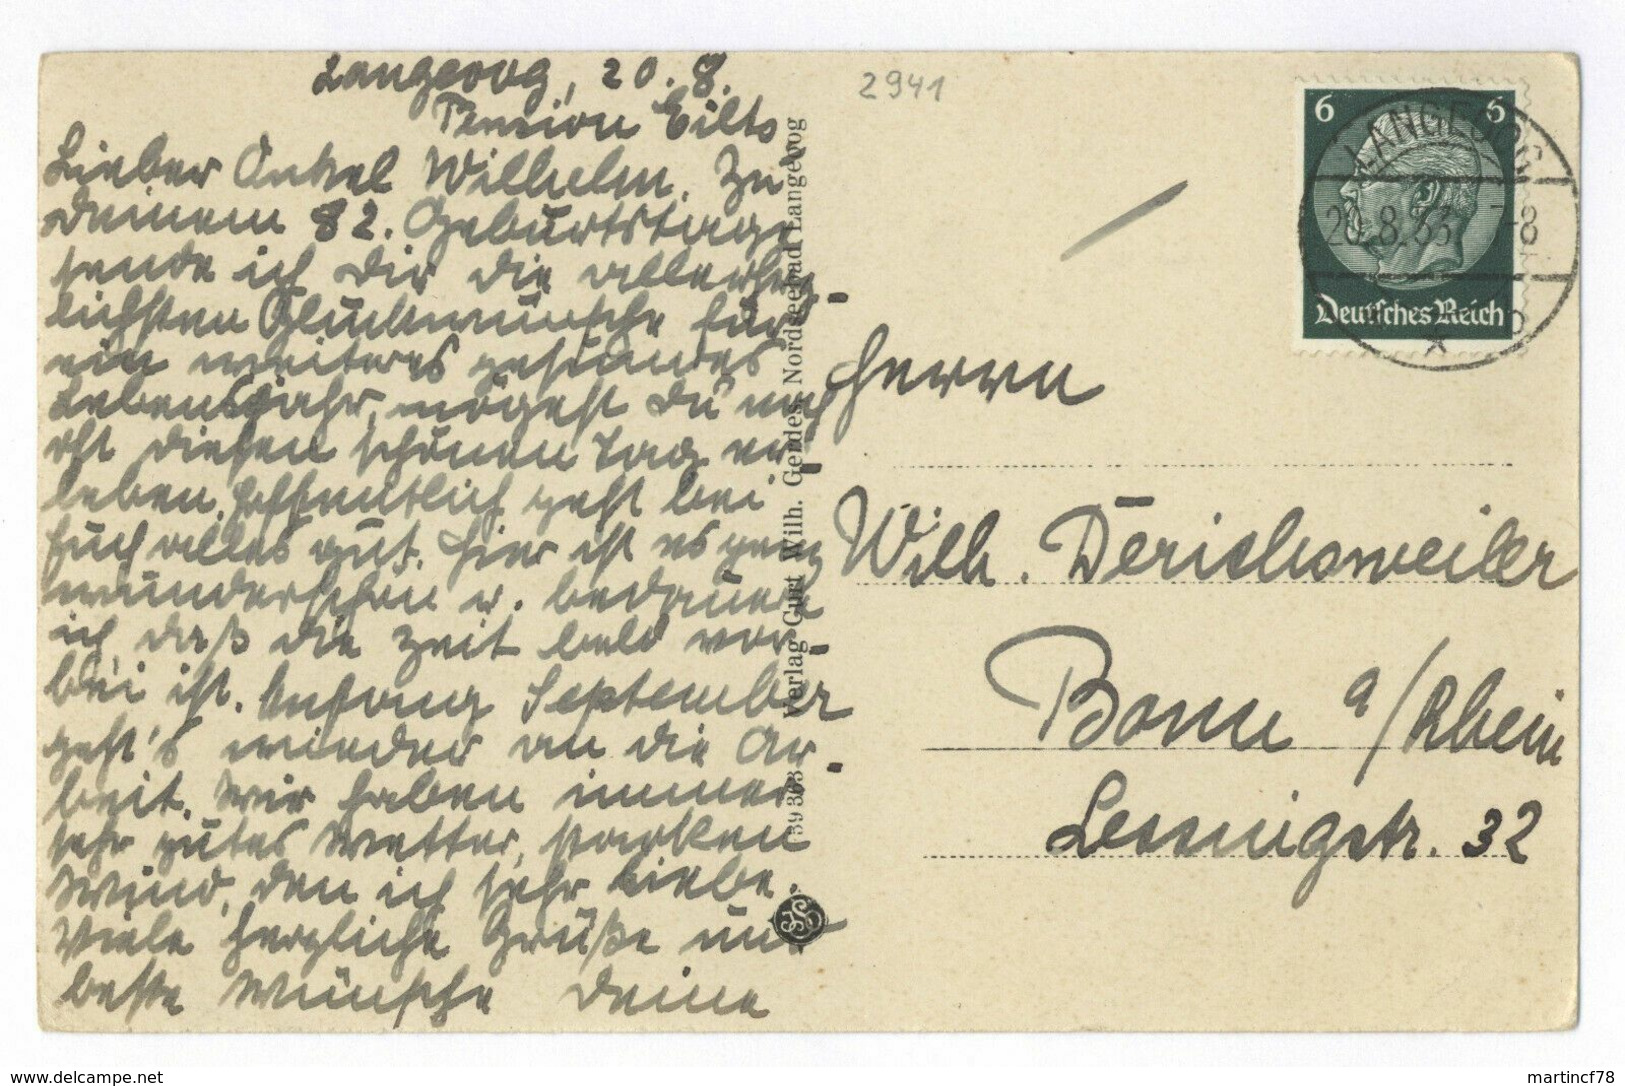 Langeoog, 20.8.
Pension Eilts
Lieber Onkel Wilhelm. Zu
Deinem 82. Geburtstage
sende ich Dir die allerherz-
lichsten Glückwünsche für
ein weiteres gesundes
Lebensjahr, mögest Du noch
oft diesen schönen Tag er-
leben. Hoffentlich geht bei
Euch alles gut. Hier ist es ganz
wunderschön u. bedauere
ich, daß die Zeit bald vor-
bei ist. Anfang September
geht's wieder an die Ar-
beit. Wir haben immer
sehr gutes Wetter, starken
Wind, den ich sehr liebe.
Viele herzliche Grüße und
beste Wünsche Deine
59363 Verlag Curt Wilh. Gerdes, Nordseebad Langeoog
2941
6 6
Deutsches Reich
LANGEOOG
20.8.33 7-8
Herrn
Wilh. Derichsweiler
Bonn a/Rhein
Lessingstr. 32
www.delcampe.net
martincf78